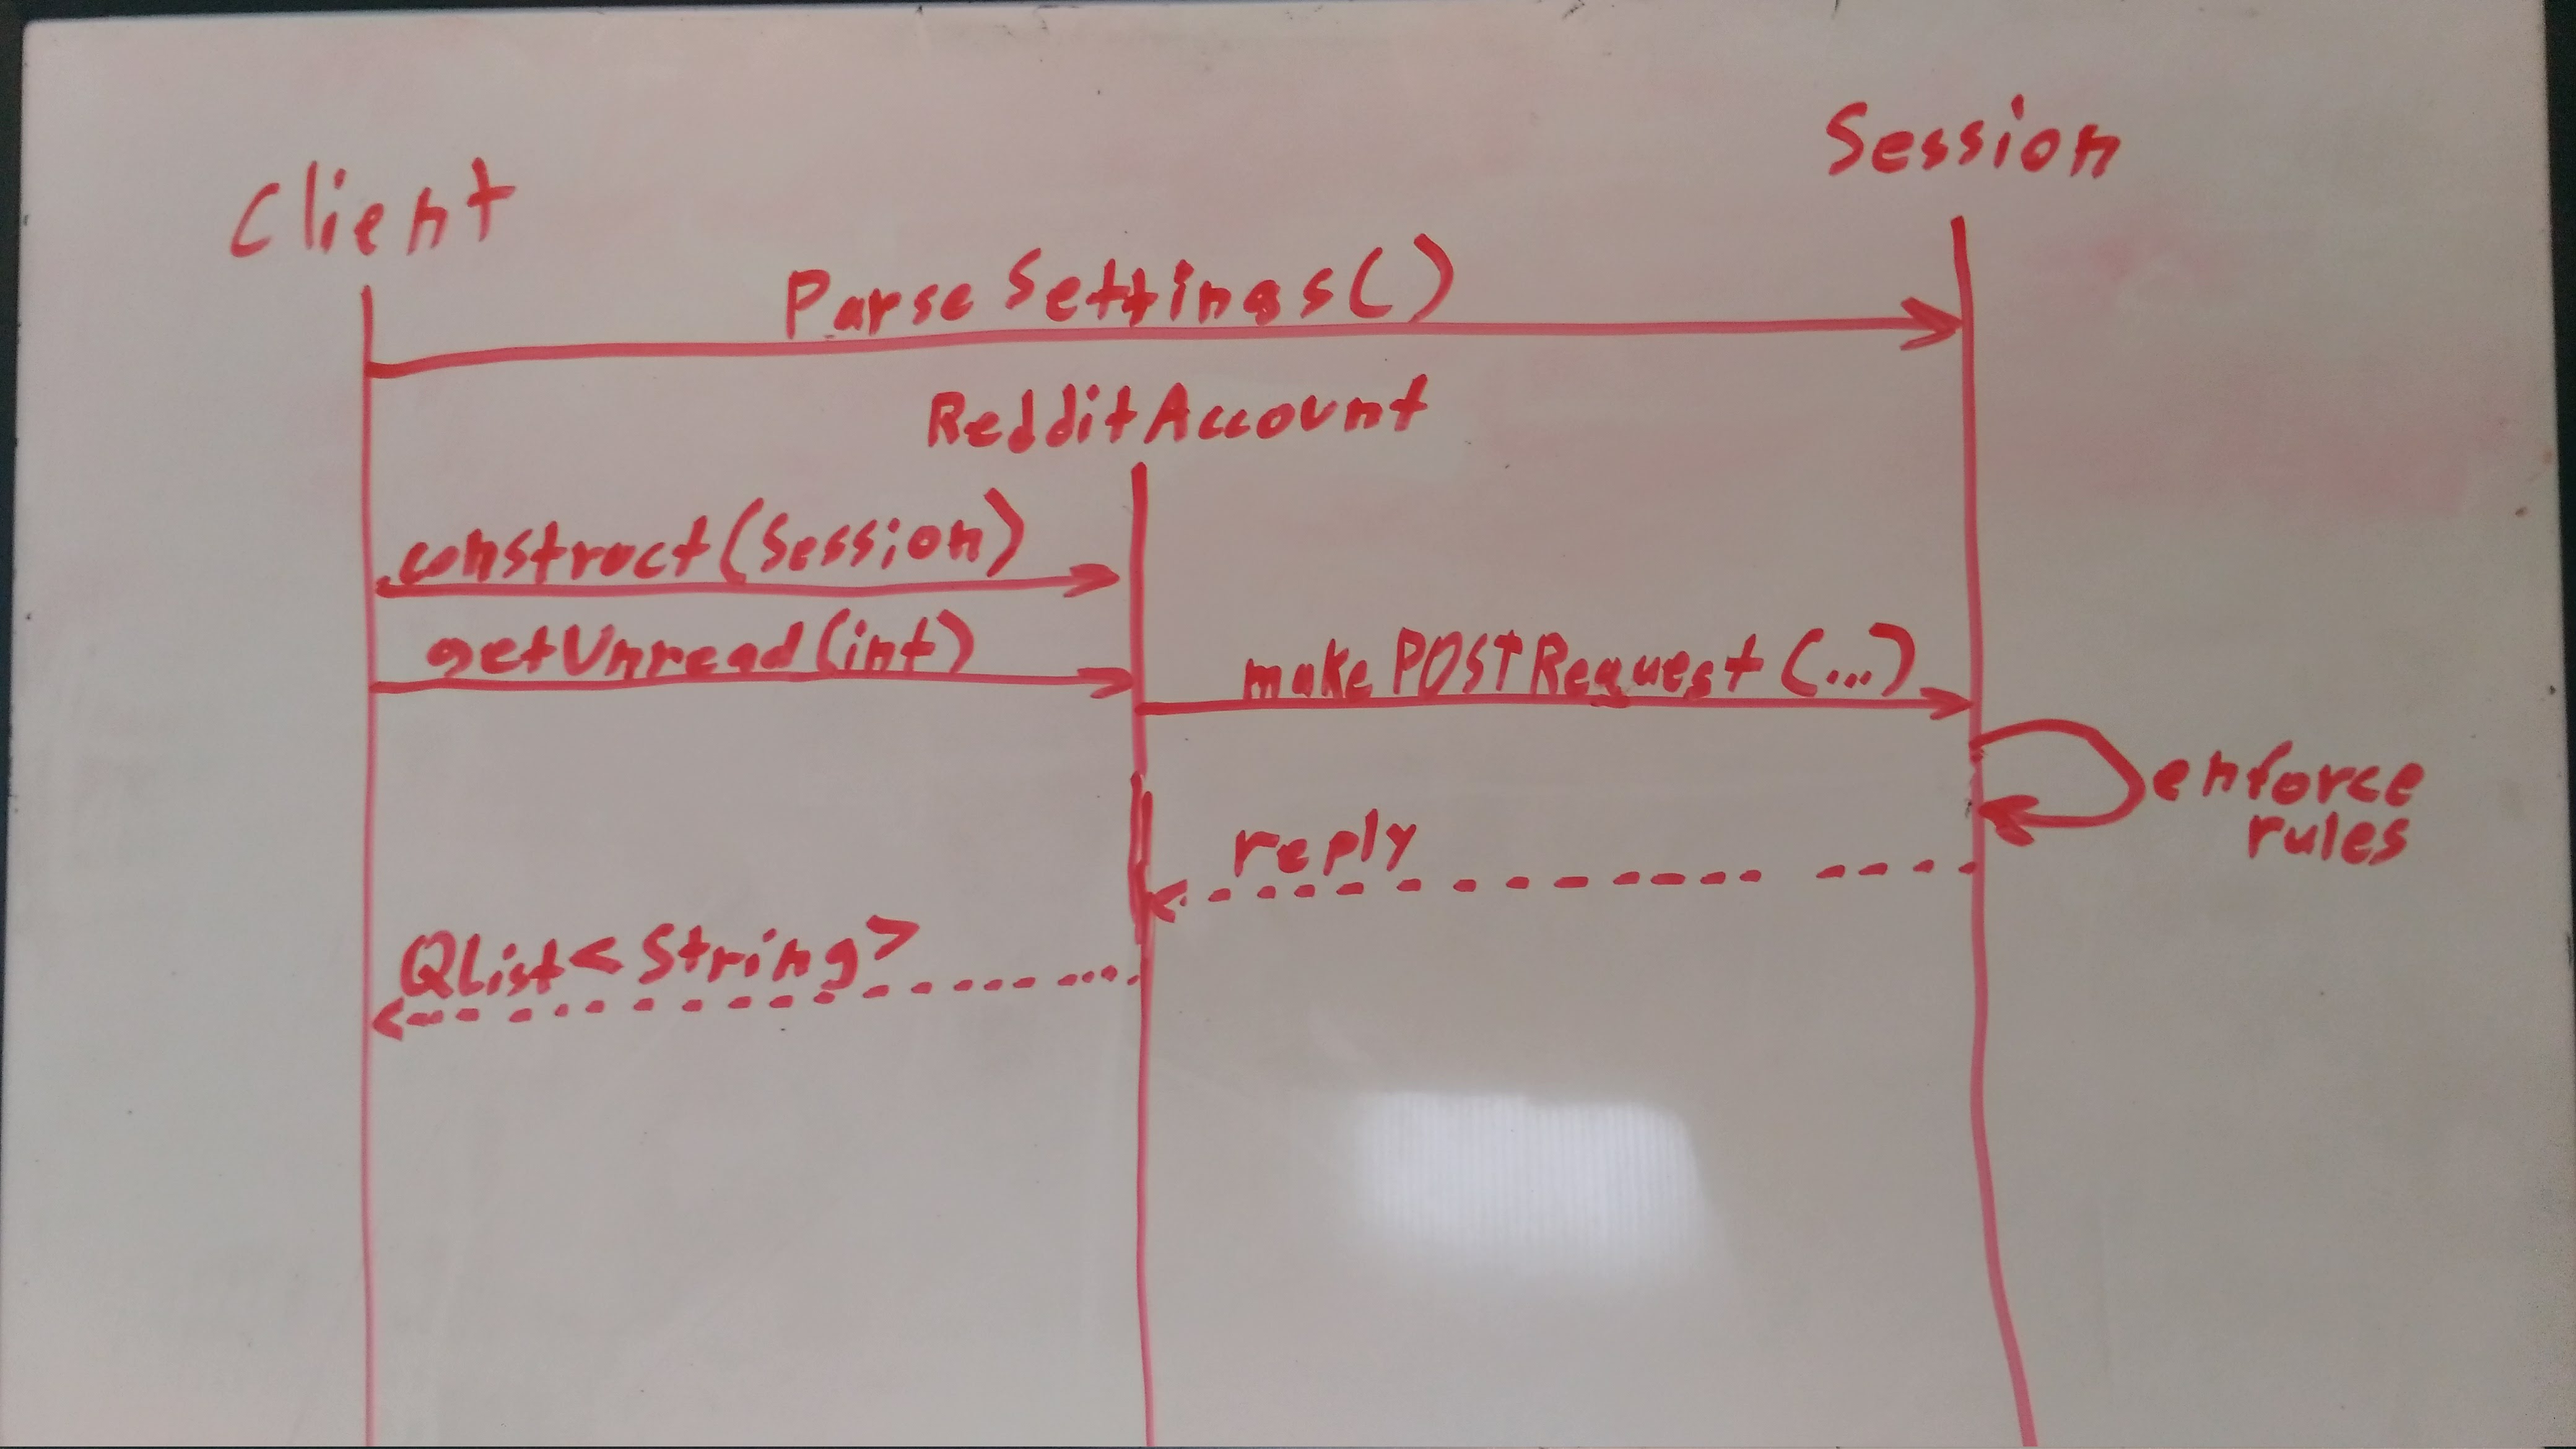 Session
Client
Parse Settings()
RedditAccount
construct(Session)
getUnread(int)
makePOSTRequest(...)
enforce
rules
reply
QList<String>